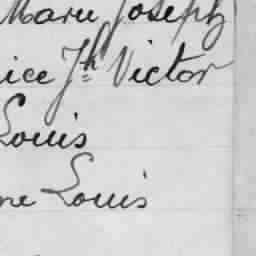 Marie Joseph
ice Jh Victor
Louis
ne Louis